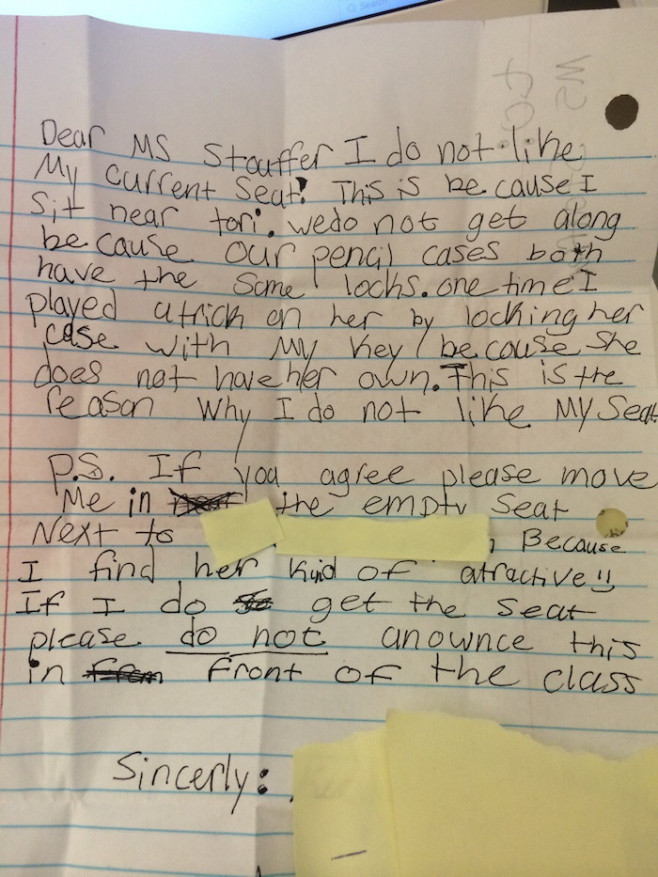 Search
Dear MS Stouffer I do not like
My current seat! This is because I
Sit near tori. we do not get along
because our pencil cases both
have the same locks. one time I
played a trick on her by locking her
case with My key because she
does not have her own. This is the
reason why I do not like My seat
P.S. If you agree please move
Me in the empty seat
Next to Because
I find her kind of atractive!!
If I do get the seat
please do not anownce this
in front of the class
Sincerly: